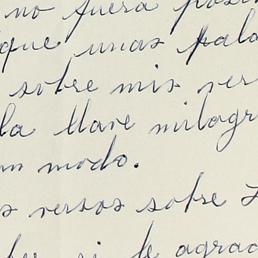 no fuera posi
que unas pala
sobre mis ver
la llave milagr
un modo.
s versos sobre
si le agrad